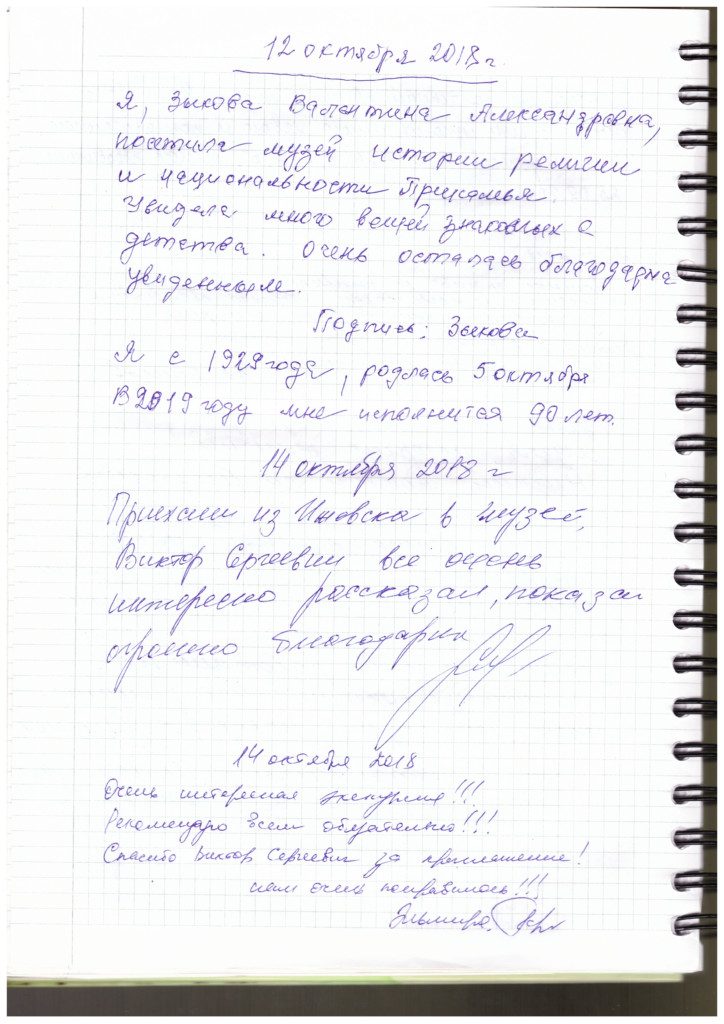 12 октября 2018 г.
Я, Зыкова Валентина Александровна,
посетила музей истории религии
и национальности Прикамья.
Увидела много вещей знакомых с
детства. Очень осталась благодарна
увиденным.
Подпись: Зыкова
Я с 1929 года, родлась 5 октября
В 2019 году мне исполнится 90 лет.
14 октября 2018 г
Приехали из Ижевска в музей,
Виктор Сергеевич все очень
интересно рассказал, показал
огромно благодарны
14 октября 2018
Очень интересная экскурсия!!!
Рекомендую всем обязательно!!!
Спасибо Виктор Сергеевич за приглашение!
нам очень понравилось!!!
Эльмира.